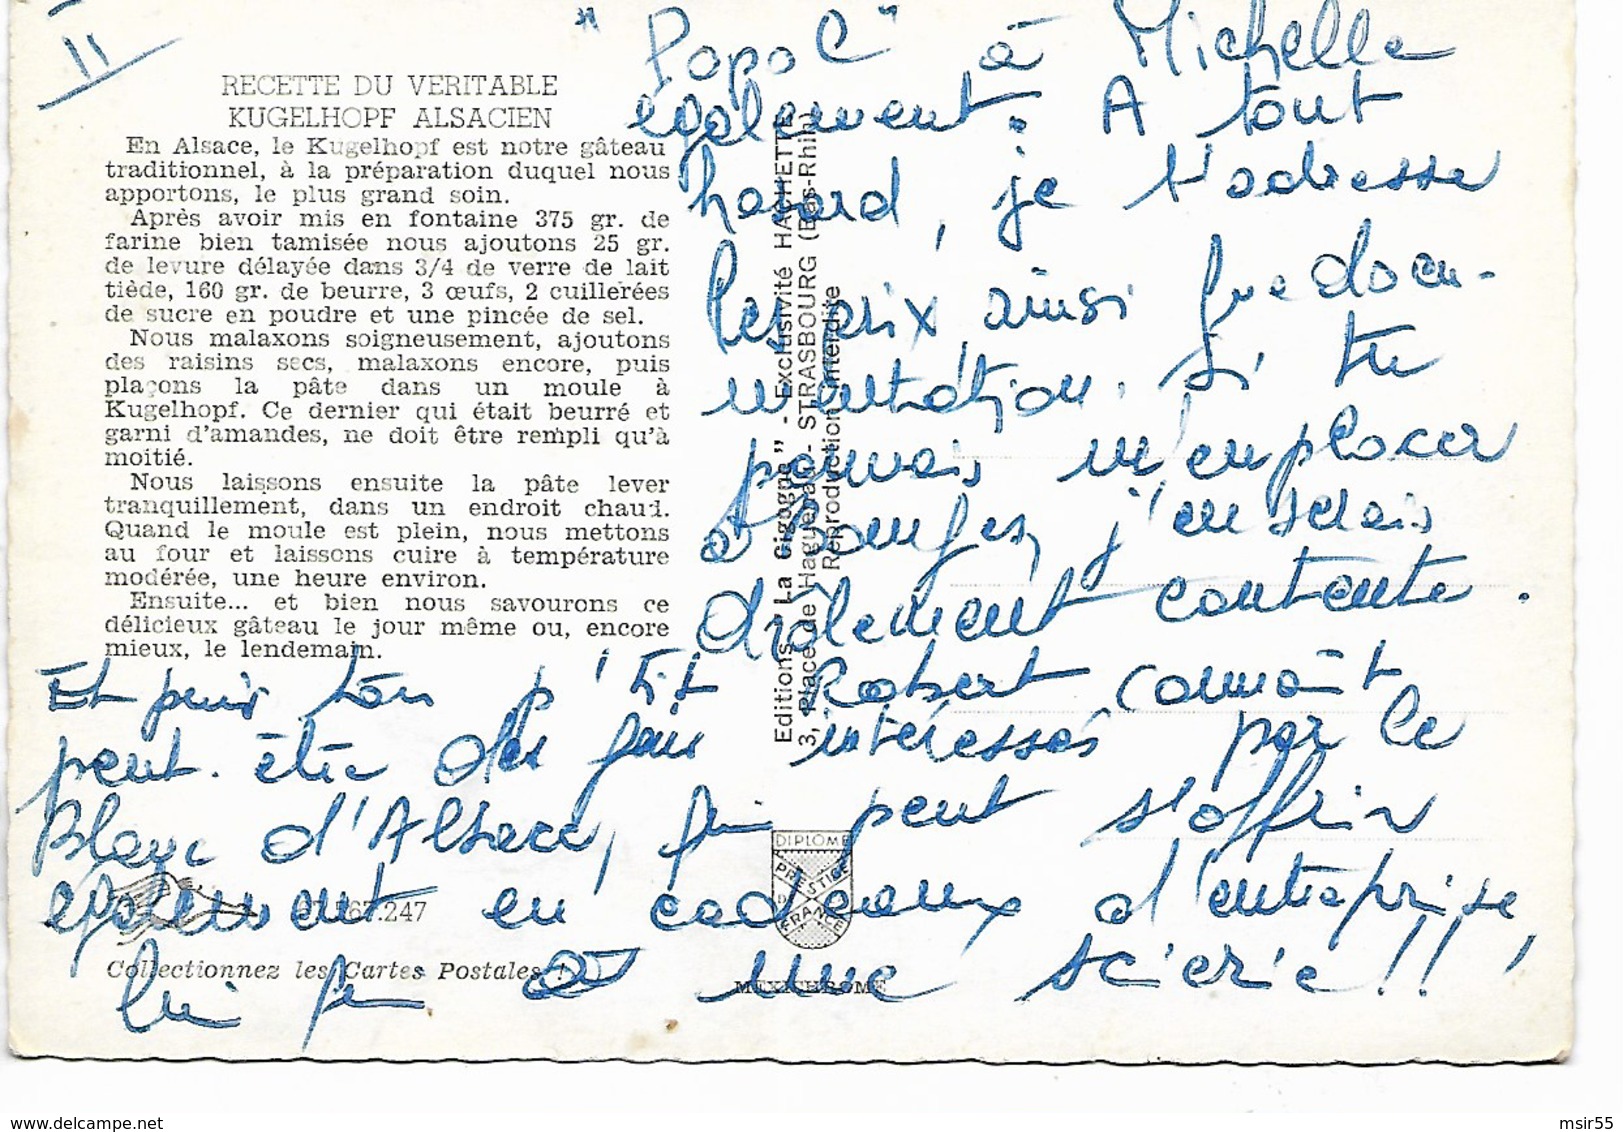 II
"Popol" à Michelle
également. A tout
hasard, je t'adresse
les prix, ainsi que docu-
mentation. Si tu
pouvais m'en placer
à Bourges, j'en serais
drôlement contente.
Et puis ton p'tit Robert connaît
peut-être des gens intéressés par le
Blanc d'Alsace, qui peut s'offrir
également en cadeaux d'entreprise,
lui qui a une scierie!!!
RECETTE DU VERITABLE
KUGELHOPF ALSACIEN
En Alsace, le Kugelhopf est notre gâteau
traditionnel, à la préparation duquel nous
apportons, le plus grand soin.
Après avoir mis en fontaine 375 gr. de
farine bien tamisée nous ajoutons 25 gr.
de levure délayée dans 3/4 de verre de lait
tiède, 160 gr. de beurre, 3 œufs, 2 cuillerées
de sucre en poudre et une pincée de sel.
Nous malaxons soigneusement, ajoutons
des raisins secs, malaxons encore, puis
plaçons la pâte dans un moule à
Kugelhopf. Ce dernier qui était beurré et
garni d'amandes, ne doit être rempli qu'à
moitié.
Nous laissons ensuite la pâte lever
tranquillement, dans un endroit chaud.
Quand le moule est plein, nous mettons
au four et laissons cuire à température
modérée, une heure environ.
Ensuite... et bien nous savourons ce
délicieux gâteau le jour même ou, encore
mieux, le lendemain.
.247
Collectionnez les Cartes Postales !
Editions "La Cigogne" - Exclusivité HACHETTE
3, Place de Haguenau - STRASBOURG (Bas-Rhin)
Reproduction interdite
DIPLOME
PRESTIGE
DE
FRANCE
MEXICHROME
msir55